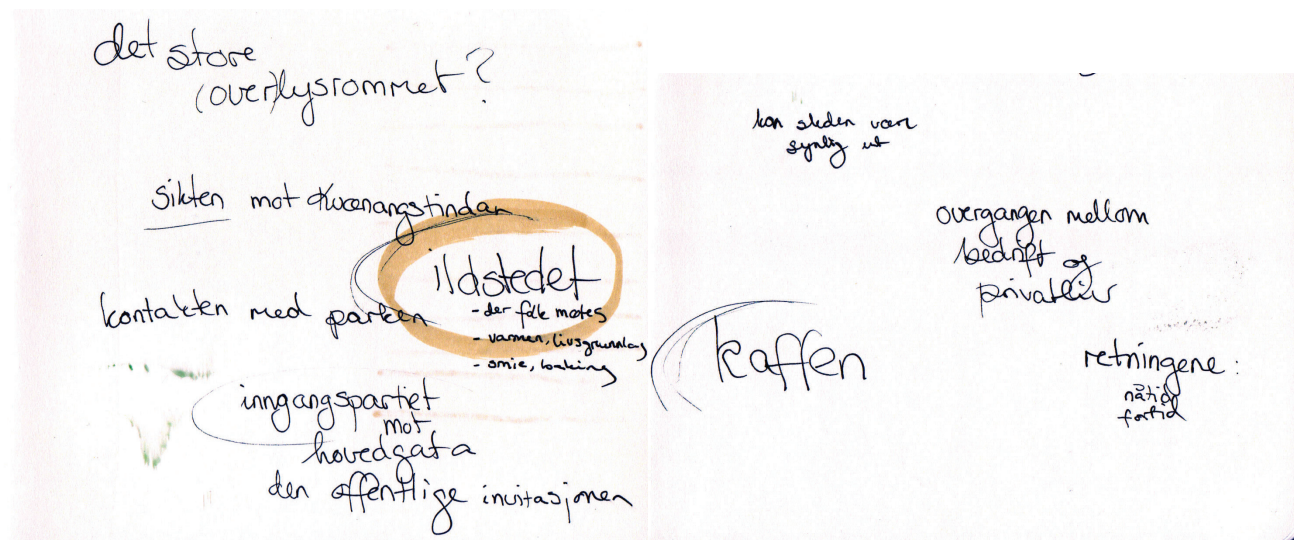 det store
(over)lysrommet?
sikten mot Kvænangstindan
ildstedet
- der folk møtes
- varmen, livsgrunnlag
- smie, baking
kontakten med parken
inngangspartiet
mot
hovedgata
den offentlige invitasjonen
kan steden være
synlig ut
overgangen mellom
bedrift og
privatliv
kaffen
retningene:
nåtid
fortid